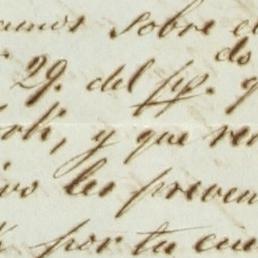 amos sobre el
do
29. del pp. q
orti, y que ren
ivo les preven
por tu cue